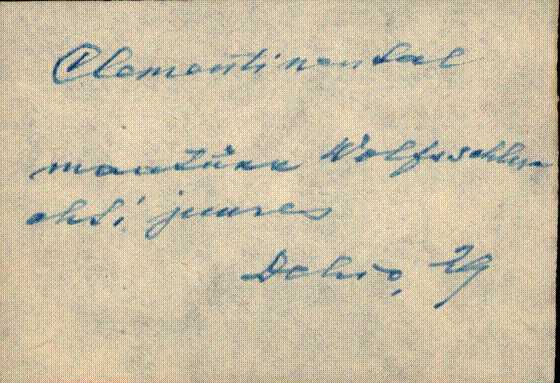 Clementinental
maatükk Wolfsschlu-
chti juures
Dehio, 29